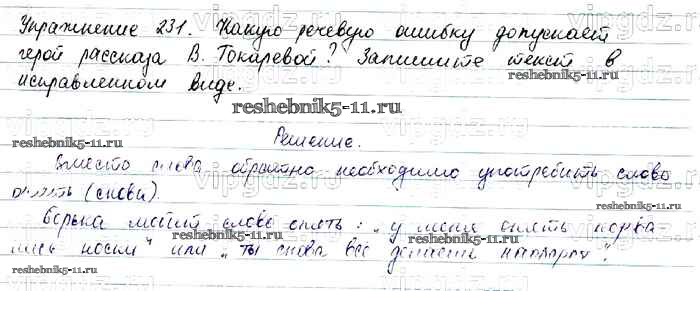 Упражнение 231. Какую речевую ошибку допускает
герой рассказа В. Токаревой? Запишите текст в
исправленном виде.
reshebnik5-11.ru
reshebnik5-11.ru
Решение.
reshebnik5-11.ru
Вместо слова обратно необходимо употребить слово
опять (снова).
reshebnik5-11.ru
Борька любит слово опять: „у меня опять порва
лись носки" или „ты снова все делаешь наоборот".
reshebnik5-11.ru
reshebnik5-11.ru